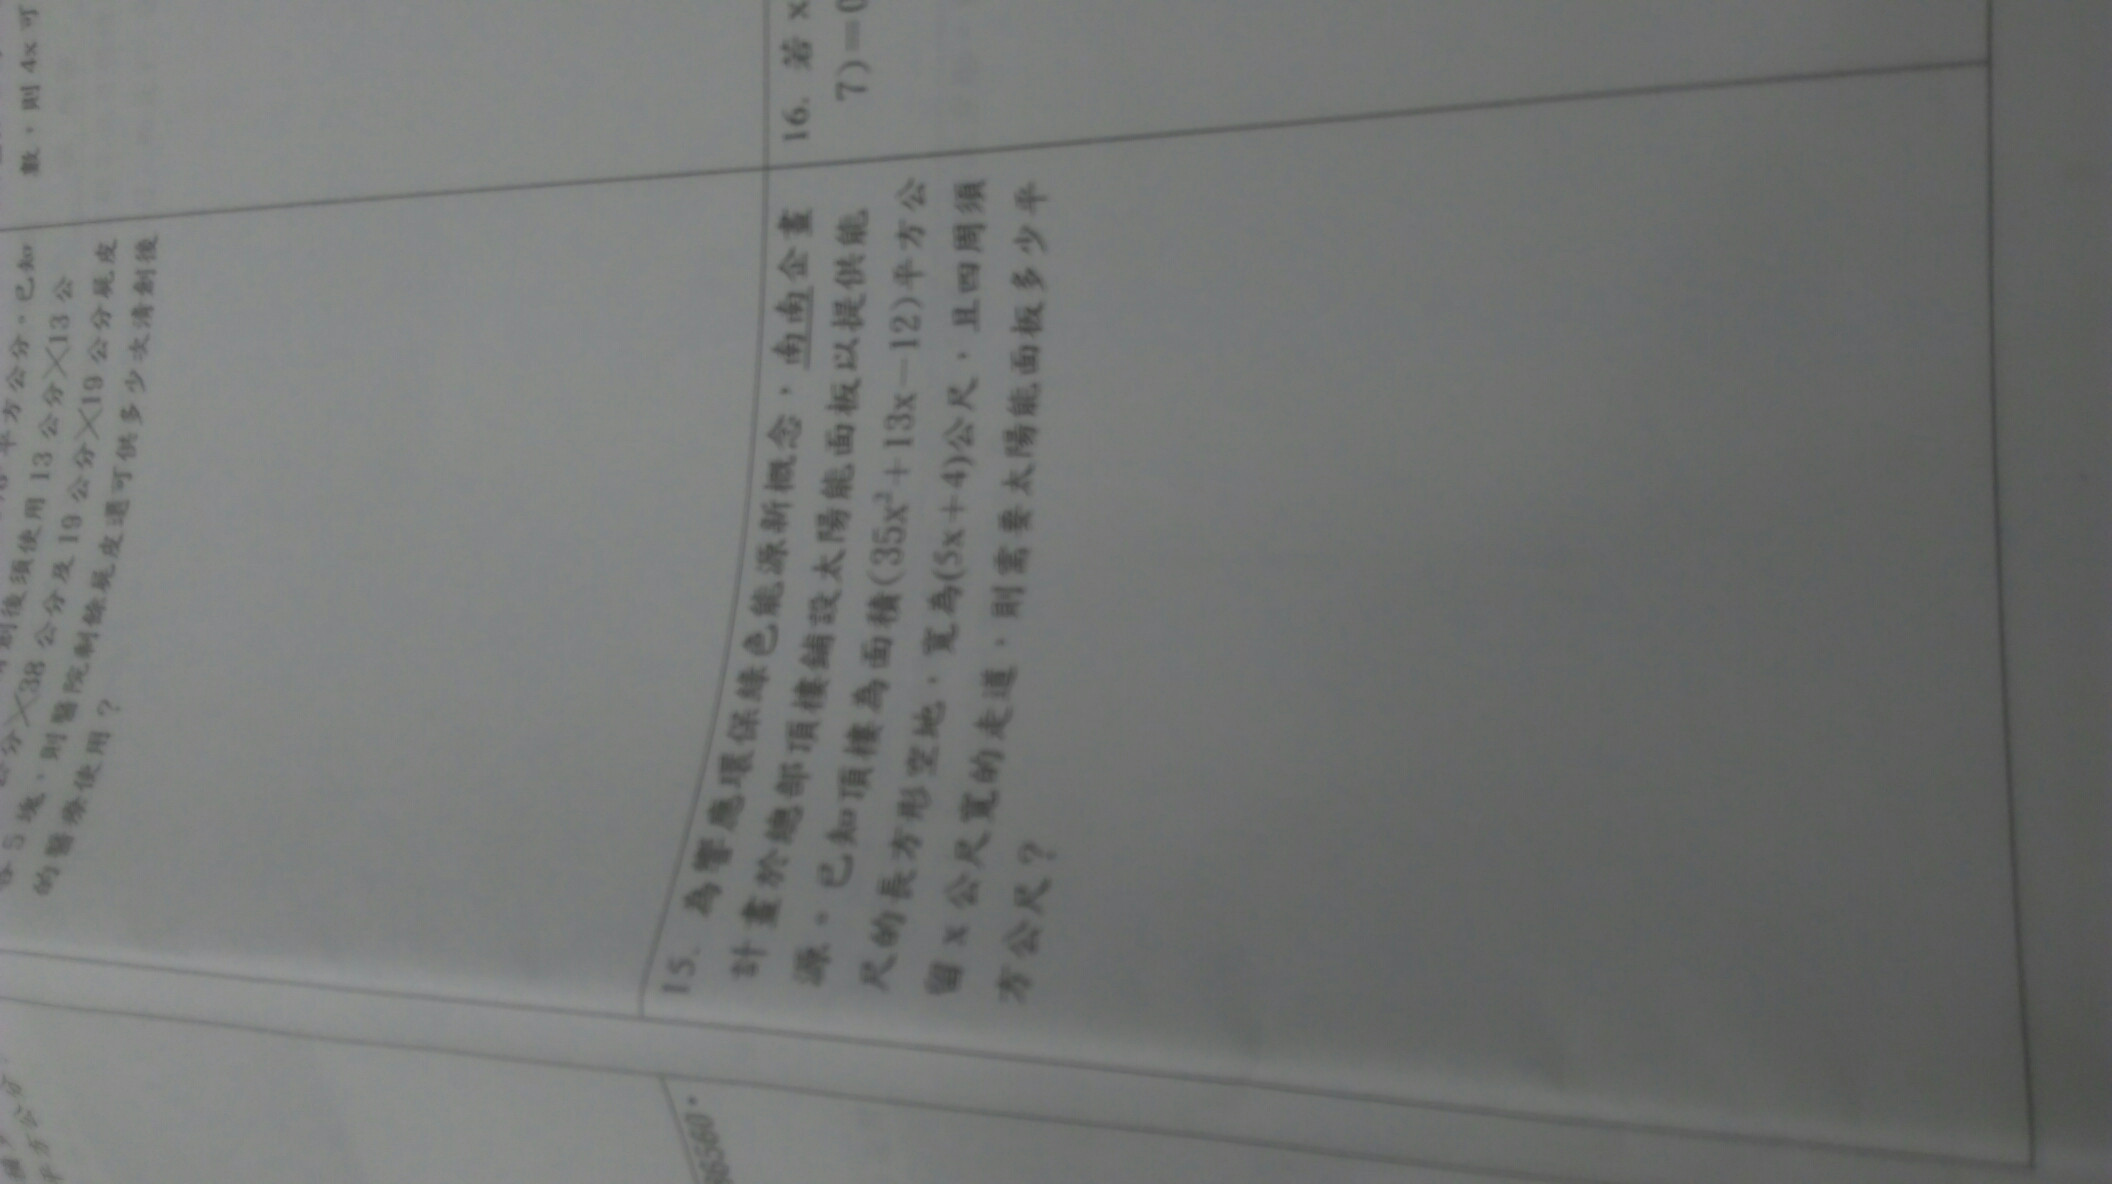 數，則 4x 可
平方公分。已知
創後須使用 13 公分╳13 公
公分╳38 公分及 19 公分╳19 公分屍皮
各 5 塊，則醫院剩餘屍皮還可供多少次清創後
的醫療使用？
15. 為響應環保綠色能源新概念，南南企畫
計畫於總部頂樓鋪設太陽能面板以提供能
源。已知頂樓為面積(35x²＋13x－12)平方公
尺的長方形空地，寬為(5x＋4)公尺，且四周須
留 x 公尺寬的走道，則需要太陽能面板多少平
方公尺？
16. 若 x
7)＝0
平方公分